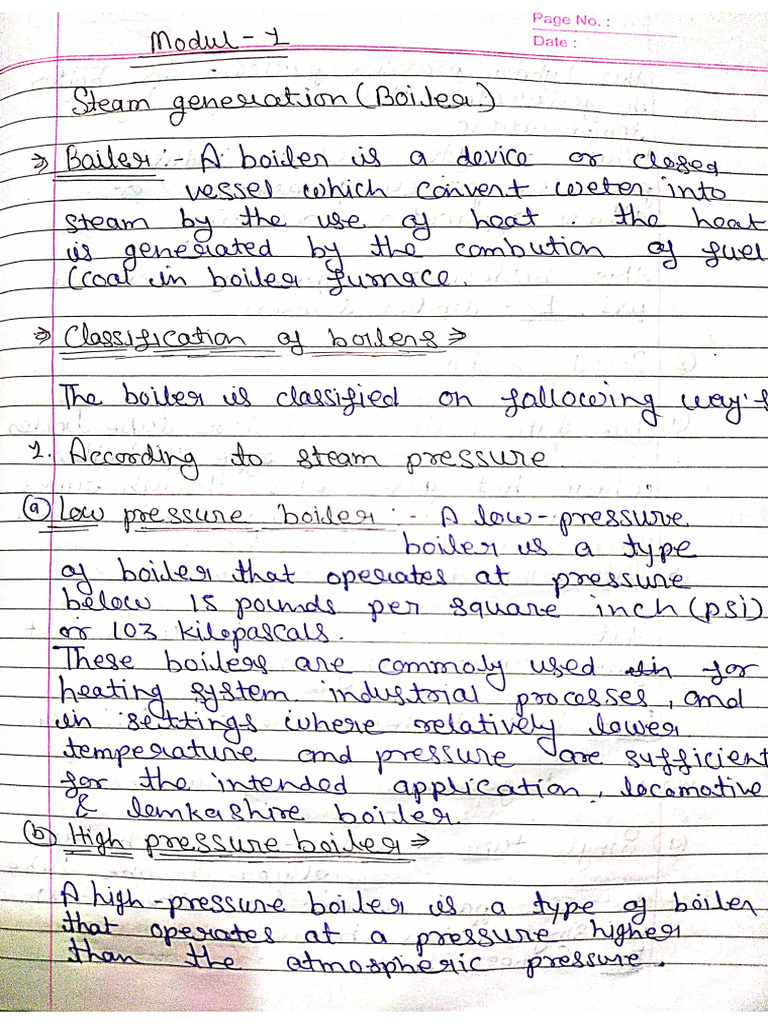 Page No. :
Date :
Modul - 1
Steam generation (Boiler)
⇒ Bailer :- A boiler is a device or closed
vessel which convert weter into
steam by the use of heat. the heat
is generated by the combution of fuel
(coal in boiler furnace.
⇒ Classification of boilers ⇒
The boiler is classified on fallowing way's
1. According to steam pressure
(a) Low pressure boiler :- A low-pressure
boiler is a type
of boiler that operates at pressure
below 15 pounds per square inch (psi)
or 103 kilopascals.
These boilers are commoly used in for
heating system industrial processes, and
in settings where relatively lower
temperature and pressure are sufficient
for the intended application, locamotive
& lemkashire boiler.
(b) High pressure boiler ⇒
A high-pressure boiler is a type of boiler
that operates at a pressure higher
than the atmospheric pressure.